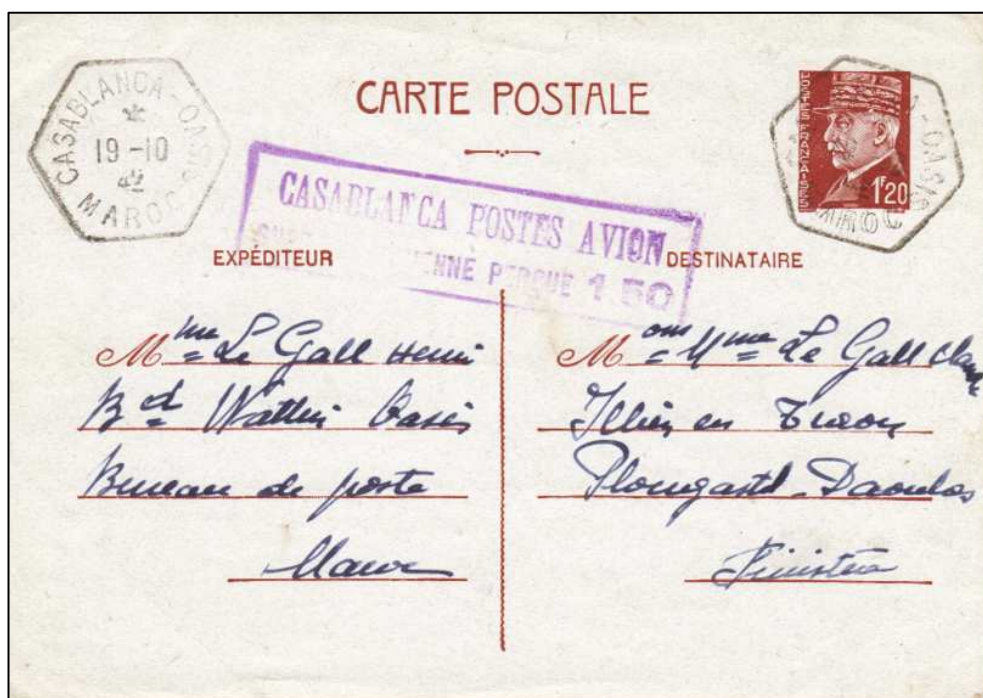 CARTE POSTALE
CASABLANCA-OASIS
19-10
42
MAROC
POSTES FRANÇAISES
1F20
OASIS
MAROC
CASABLANCA POSTES AVION
PERÇUE 1 50
EXPÉDITEUR
DESTINATAIRE
Mme Le Gall Henri
Bd Wattin Oasis
Bureau de poste
Maroc
Mons Mme Le Gall
Illien en
Plougastel-Daoulas
Finistère